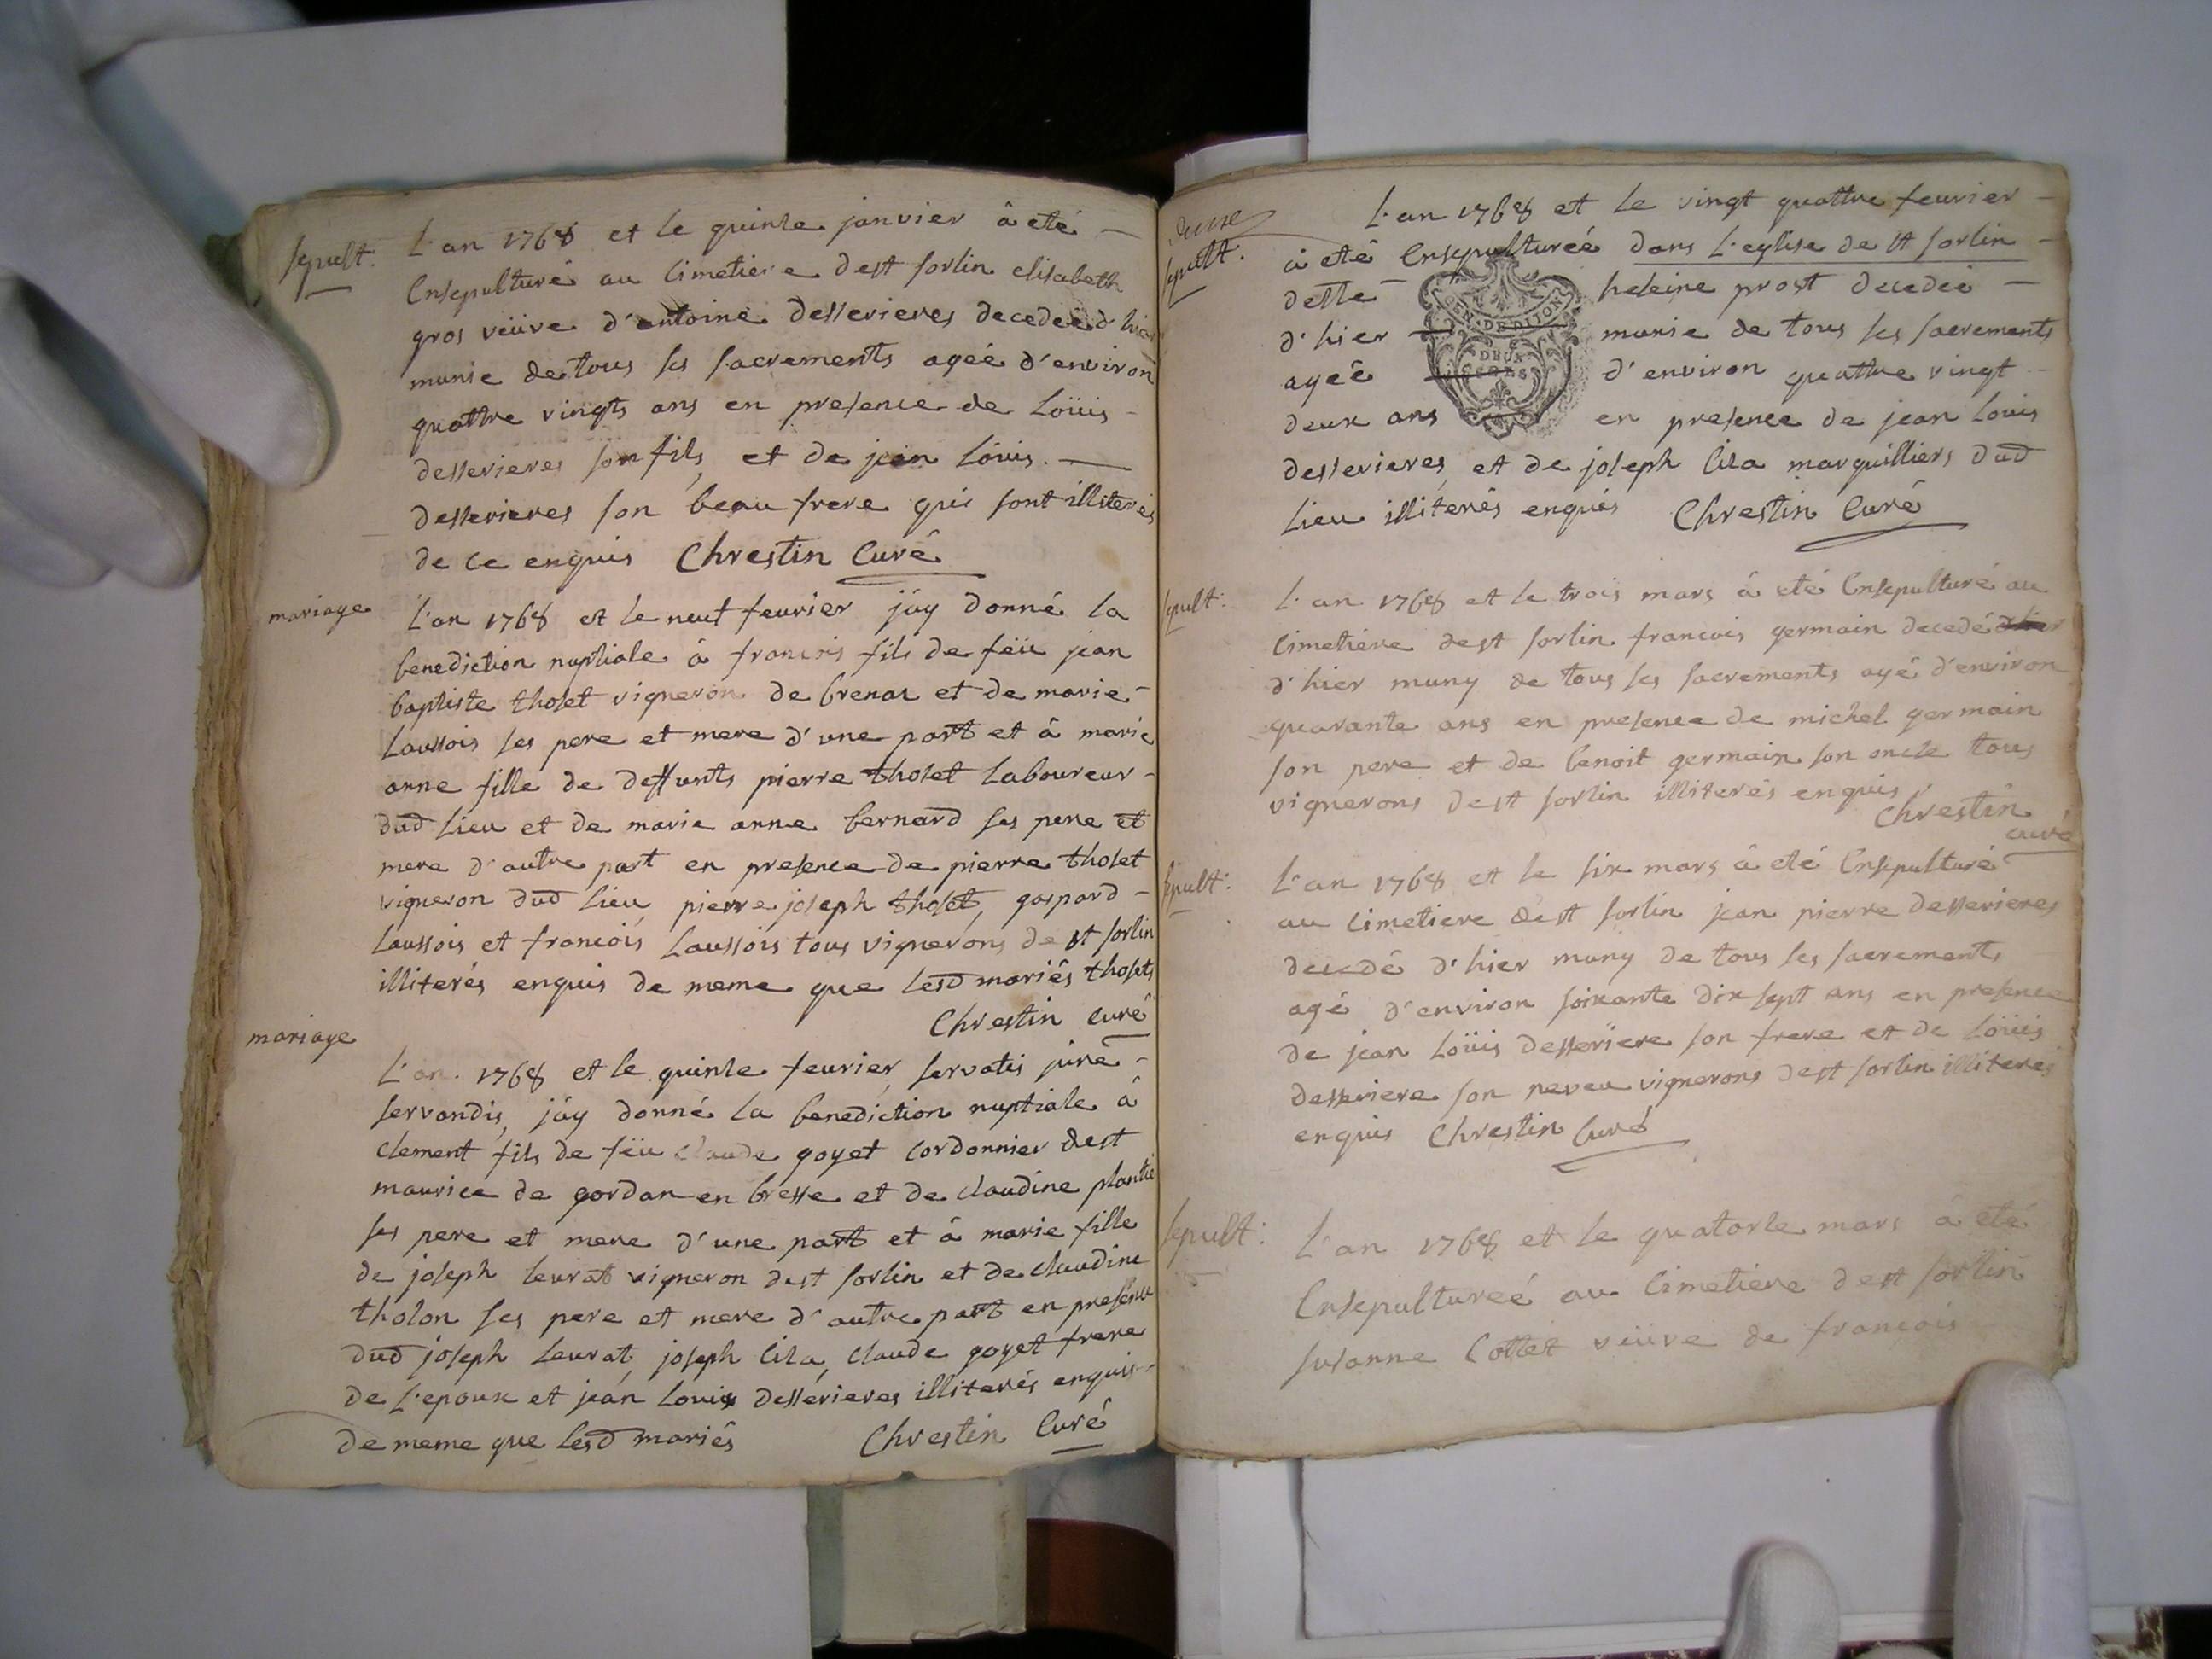 sepult. L'an 1768 et le quinze janvier â eté
Ensepulturé au Cimetiere dest sorlin elisabeth
gros veüve d'antoine desserieres decedeé d'hier
munie de tous ses sacrements ageé d'environ
quattre vingts ans en presence de Loüis
desserieres son fils, et de jean Loüis
desserieres son beau frere qui sont illiterés
de ce enquis Chrestin Curé
mariage L'an 1768 et le neuf feurier j'ay donné la
benediction nuptiale â francois fils de feü jean
baptiste tholet vigneron de brenaz et de marie
Laussois ses pere et mere d'une part et â marie
anne fille de deffunts pierre tholet Laboureur
dud Lieu et de marie anne bernard ses pere et
mere d'autre part en presence de pierre tholet
vigneron dud Lieu, pierre joseph tholet, gaspard
Laussois et francois Laussois tous vignerons de st sorlin
illiterés enquis de meme que lesd mariés tholets
Chrestin Curé
mariage
L'an 1768 et le quinze feurier, servatis jure
servandis, j'ay donné la benediction nuptiale â
Clement fils de feü Claude goyet Cordonnier dest
maurice de gordan en bresse et de Claudine plantié
ses pere et mere d'une part et â marie fille
de joseph Leurat vigneron dest sorlin et de Claudine
tholon ses pere et mere d'autre part en presence
dud joseph Leurat, joseph Ciza, Claude goyet frere
de L'epoux et jean Louis desserieres illiterés enquis
de meme que lesd mariés Chrestin Curé
L'an 1768 et le vingt quattre feurier
sepult. â eté Ensepultureé dans L'eglise de st sorlin
dette heleine prost decedeé
GEN. DE DIJON
d'hier munie de tous ses sacrements
DEUX
ageé d'environ quattre vingt
deux ans en presence de jean Louis
desserieres, et de joseph Ciza marguilliers dud
Lieu illiterés enquis Chrestin Curé
sepult: L'an 1768 et le trois mars â eté Ensepulturé au
Cimetiere dest sorlin francois germain decedé d'hier
d'hier muny de tous ses sacrements agé d'environ
quarante ans en presence de michel germain
son pere et de benoit germain son oncle tous
vignerons dest sorlin illiterés enquis
Chrestin
curé
sepult: L'an 1768 et le six mars â eté Ensepulturé
au Cimetiere dest sorlin jean pierre desserieres
decedé d'hier muny de tous ses sacrements
agé d'environ soixante dix sept ans en presence
de jean Loüis desseriere son frere et de Loüis
desseriere son neveu vignerons dest sorlin illiterés
enquis Chrestin Curé
sepult: L'an 1768 et le quatorze mars â eté
Ensepultureé au Cimetiere dest sorlin
susanne Cottet veüve de francois